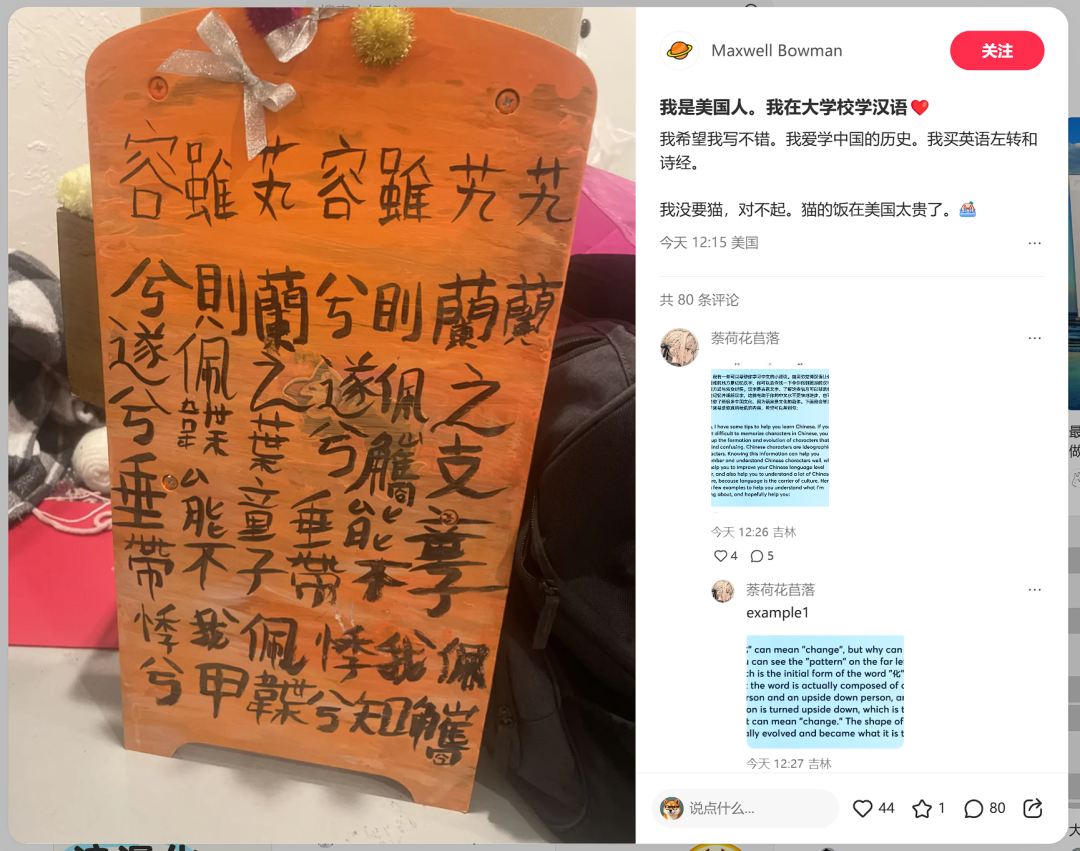 艽蘭
艽蘭之支童子佩觿
雖則佩觿能不我知
容兮遂兮垂帶悸兮
芄蘭之葉童子佩韘
雖則佩韘能不我甲
容兮遂兮垂帶悸兮
Maxwell Bowman
关注
我是美国人。我在大学校学汉语❤️
我希望我写不错。我爱学中国的历史。我买英语左转和
诗经。
我没要猫，对不起。猫的饭在美国太贵了。
今天 12:15 美国
共 80 条评论
萘荷花菖落
, I have some tips to help you learn Chinese, If you
difficult to memorize characters in Chinese, you
up the formation and evolution of characters that
nd confusing. Chinese characters are ideographic
acters. Knowing this information can help you
mber and understand Chinese characters well, wi
help you to improve your Chinese language level
, and also help you to understand a lot of Chines
re, because language is the carrier of culture. Her
few examples to help you understand what I'm
ng about, and hopefully help you:
今天 12:26 吉林
4 5
萘荷花菖落
example1
" can mean "change", but why can
can see the "pattern" on the far le
ch is the initial form of the word "化"
the word is actually composed of
rson and an upside down person, a
on is turned upside down, which is t
t can mean "change." The shape of
ally evolved and became what it is t
今天 12:27 吉林
说点什么...
44 1 80